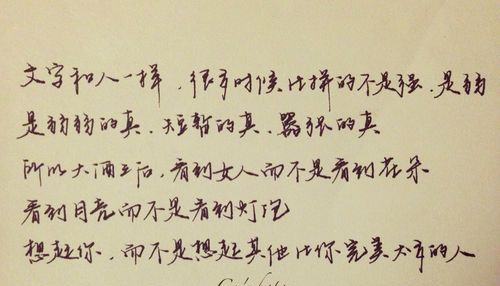 文字和人一样.很多时候比拼的不是强.是弱
是弱弱的真.短暂的真.嚣张的真
所以大酒之后,看到女人而不是看到花朵
看到月亮而不是看到灯泡
想起你,而不是想起其他比你完美太多的人